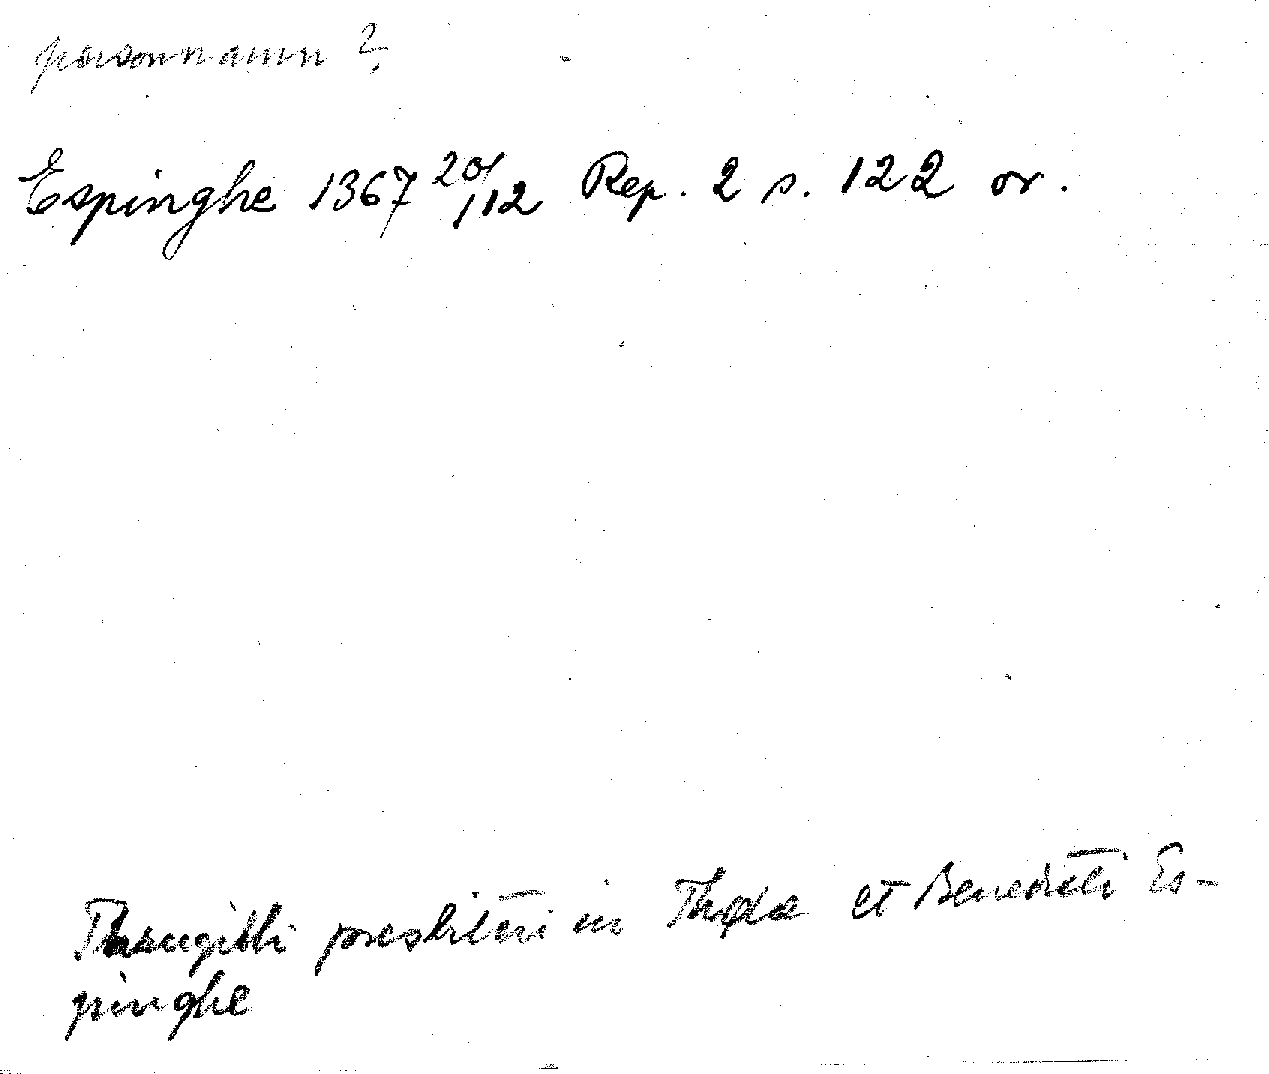 personnamn?
Espinghe 1367 20/12 Rep. 2 s. 122 or.
presbiteri in et Benedicti Es-
pinghe